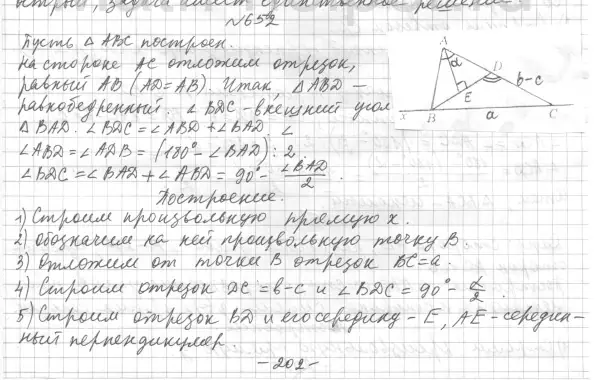 острый, задача имеет единственное решение
N652
Пусть △ ABC построен.
На стороне AC отложим отрезок,
равный AB (AD=AB). Итак, △ ABD –
равнобедренный. ∠ BDC – внешний угол
△ BAD. ∠BDC = ∠ABD + ∠BAD. ∠
∠ABD = ∠ADB = (180° – ∠BAD) : 2.
∠BDC = ∠BAD + ∠ABD = 90° – ∠BAD/2.
Построение.
1) Строим произвольную прямую x.
2) Обозначим на ней произвольную точку B.
3) Отложим от точки B отрезок BC=a.
4) Строим отрезок DC = b-c и ∠BDC = 90° – α/2.
5) Строим отрезок BD и его середину – E, AE – середин-
ный перпендикуляр.
– 202 –
A
α
D
b-c
E
x
B
a
C